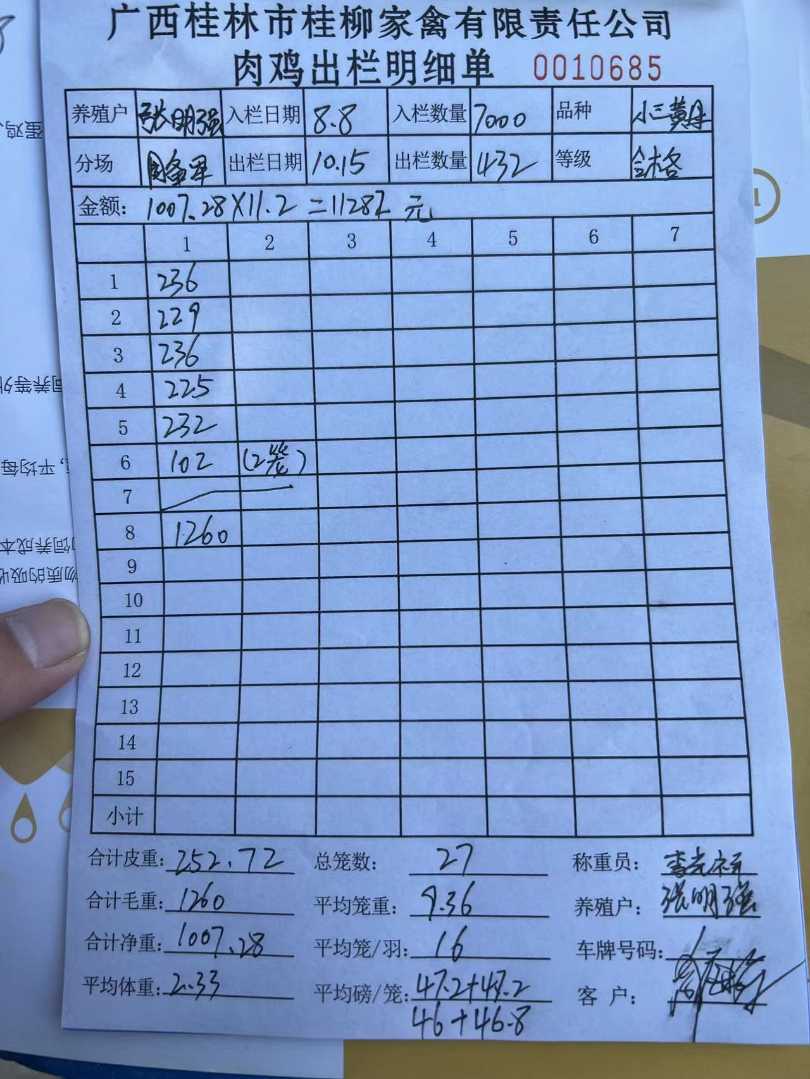 广西桂林市桂柳家禽有限责任公司
肉鸡出栏明细单 0010685
养殖户 张明强 入栏日期 8.8 入栏数量 7000 品种 小三黄母
分场 出栏日期 10.15 出栏数量 432 等级 合格
金额: 1007.28×11.2=11282 元
1 2 3 4 5 6 7
1 236
2 229
3 236
4 225
5 232
6 102 (2笼)
7
8 1260
9
10
11
12
13
14
15
小计
合计皮重: 252.72 总笼数: 27 称重员:
合计毛重: 1260 平均笼重: 9.36 养殖户: 张明强
合计净重: 1007.28 平均笼/羽: 16 车牌号码:
平均体重: 2.33 平均磅/笼: 47.2+47.2 客户:
46+46.8